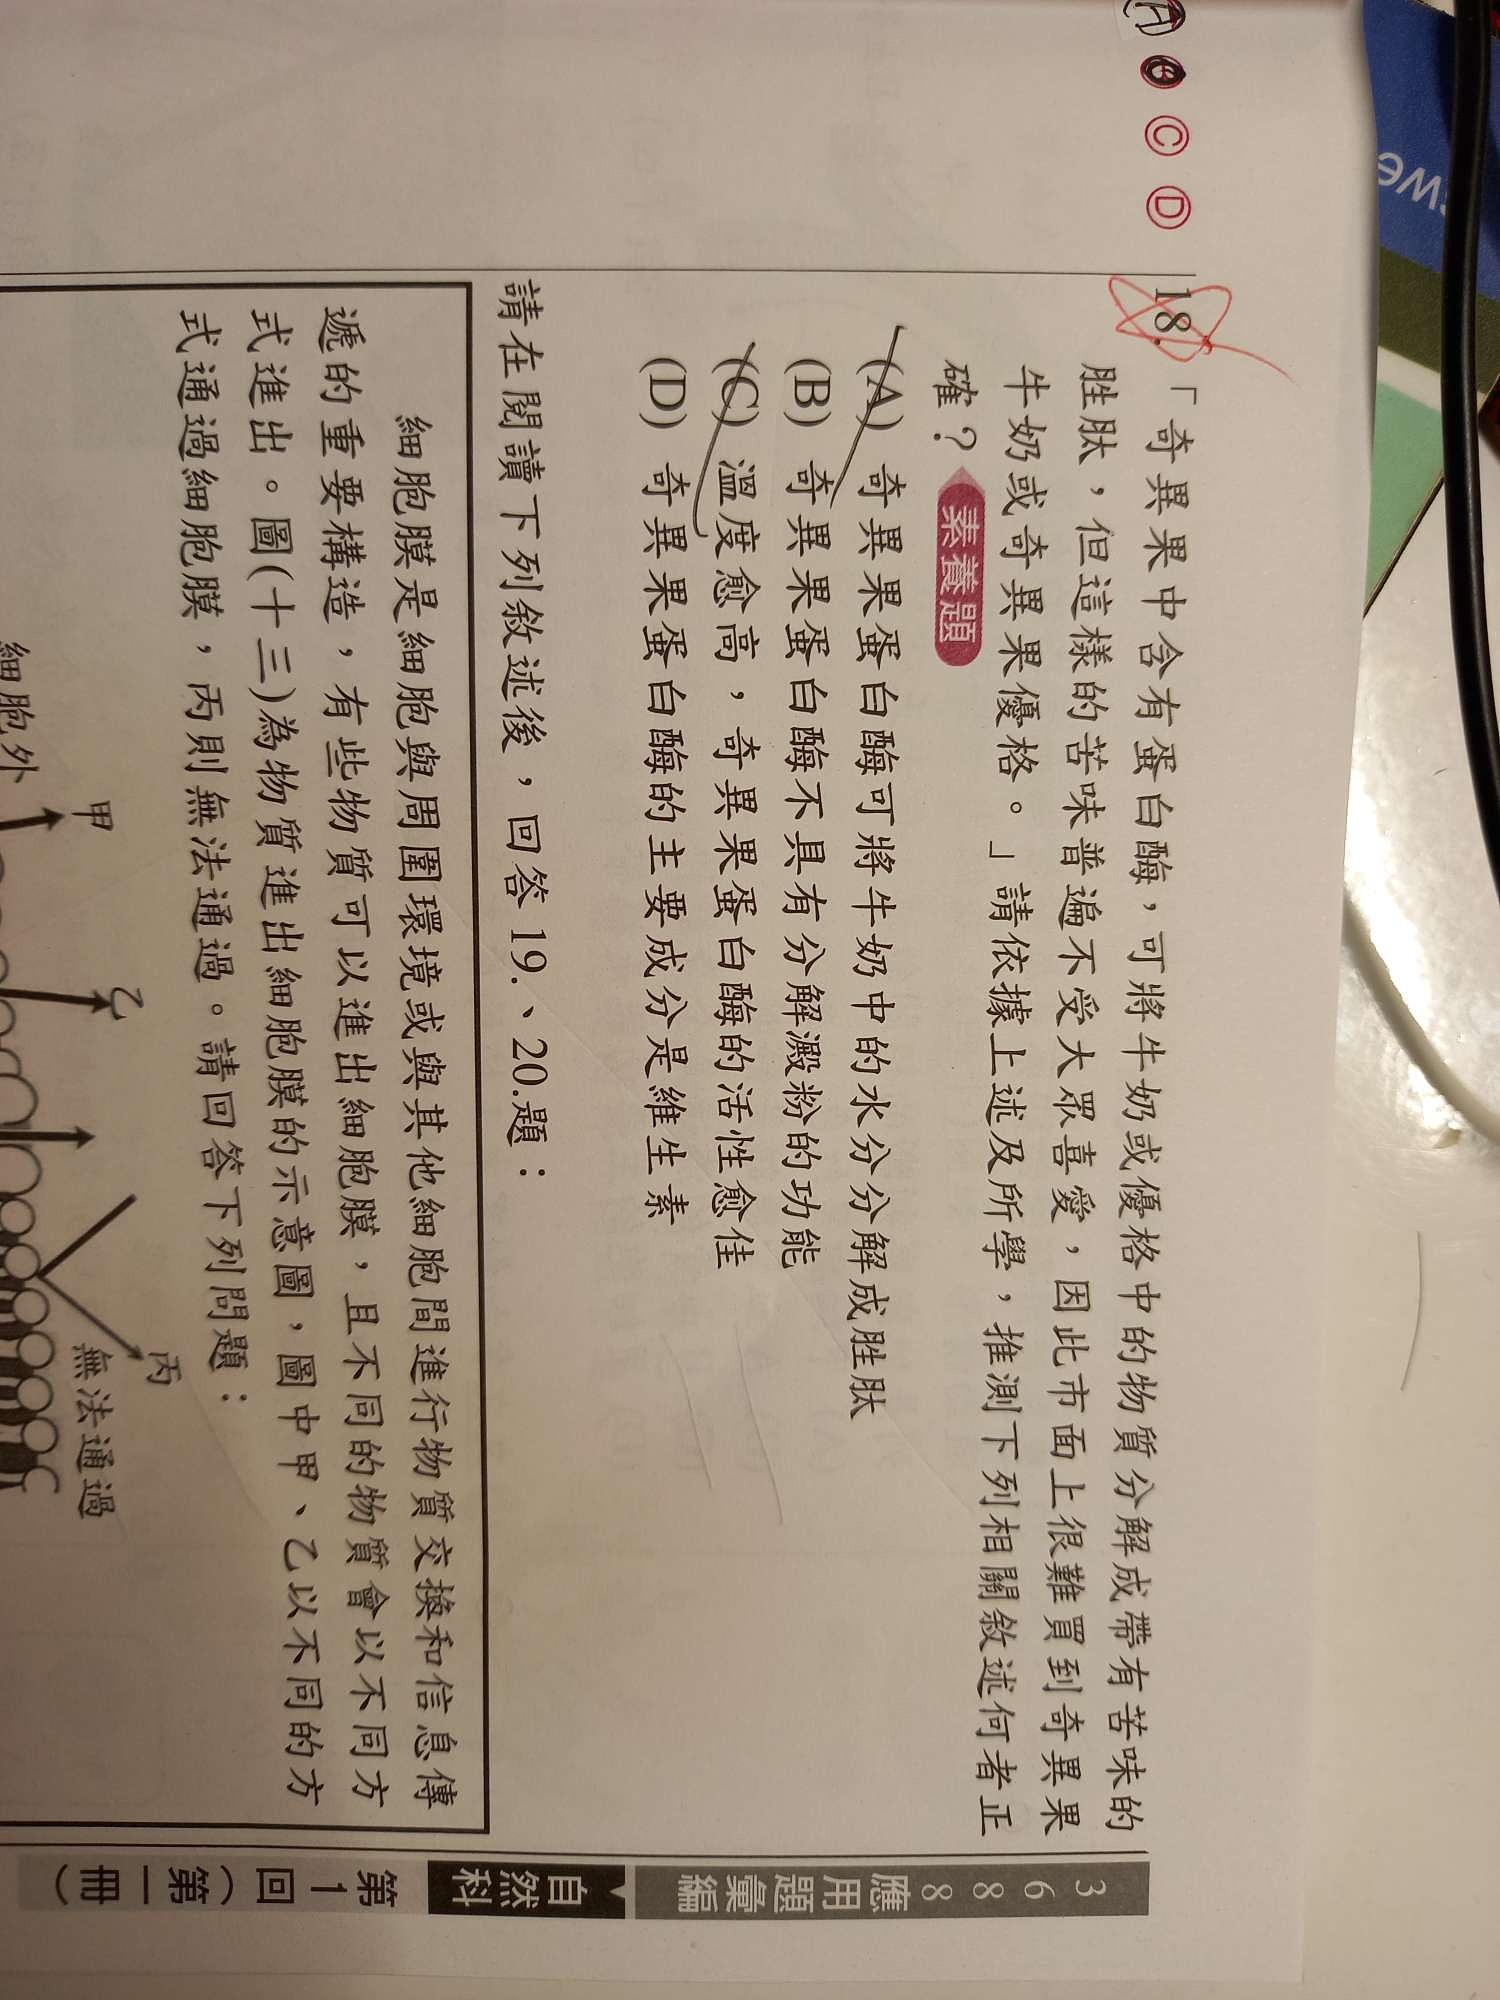 A B C D
18. 「奇異果中含有蛋白酶，可將牛奶或優格中的物質分解成帶有苦味的
胜肽，但這樣的苦味普遍不受大眾喜愛，因此市面上很難買到奇異果
牛奶或奇異果優格。」請依據上述及所學，推測下列相關敘述何者正
確？素養題
(A) 奇異果蛋白酶可將牛奶中的水分分解成胜肽
(B) 奇異果蛋白酶不具有分解澱粉的功能
(C) 溫度愈高，奇異果蛋白酶的活性愈佳
(D) 奇異果蛋白酶的主要成分是維生素
請在閱讀下列敘述後，回答19.、20.題：
細胞膜是細胞與周圍環境或與其他細胞間進行物質交換和信息傳
遞的重要構造，有些物質可以進出細胞膜，且不同的物質會以不同方
式進出。圖(十三)為物質進出細胞膜的示意圖，圖中甲、乙以不同的方
式通過細胞膜，丙則無法通過。請回答下列問題：
甲
乙
丙
無法通過
細胞外
3688
應用題彙編
自然科
第1回（第一冊）